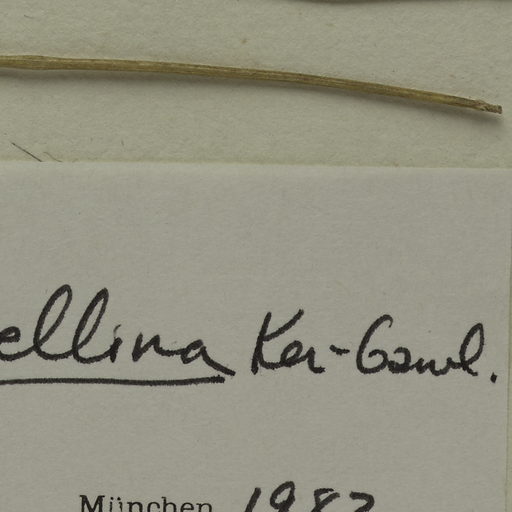 ellina Ker-Gawl.
München 1982